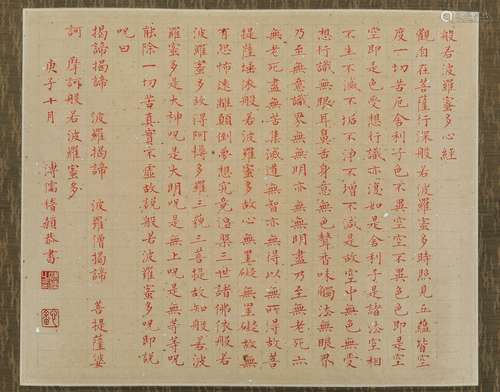 般若波羅蜜多心經
觀自在菩薩行深般若波羅蜜多時照見五蘊皆空
度一切苦厄舍利子色不異空空不異色色即是空
空即是色受想行識亦復如是舍利子是諸法空相
不生不滅不垢不淨不增不減是故空中無色無受
想行識無眼耳鼻舌身意無色聲香味觸法無眼界
乃至無意識界無無明亦無無明盡乃至無老死亦
無老死盡無苦集滅道無智亦無得以無所得故菩
提薩埵依般若波羅蜜多故心無罣礙無罣礙故無
有恐怖遠離顛倒夢想究竟涅槃三世諸佛依般若
波羅蜜多故得阿耨多羅三藐三菩提故知般若波
羅蜜多是大神呪是大明呪是無上呪是無等等呪
能除一切苦真實不虛故說般若波羅蜜多呪即說
呪曰
揭諦揭諦 波羅揭諦 波羅僧揭諦 菩提薩婆
訶 摩訶般若波羅蜜多
庚子十月 溥儒稽顙恭書